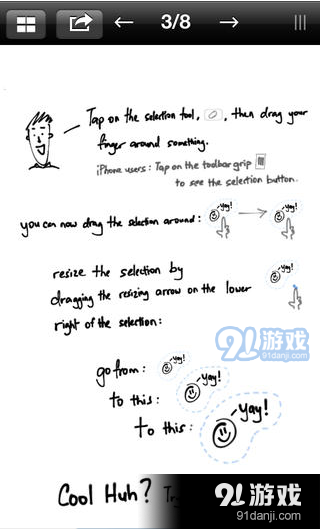 3/8
Tap on the selection tool, , then drag your
finger around something.
iPhone users: Tap on the toolbar grip
to see the selection button.
you can now drag the selection around:
yay!
yay!
resize the selection by
dragging the resizing arrow on the lower
right of the selection:
yay!
91游戏
91danji.com
go from:
yay!
to this:
yay!
to this:
yay!
Cool Huh?
91游戏
91danji.com